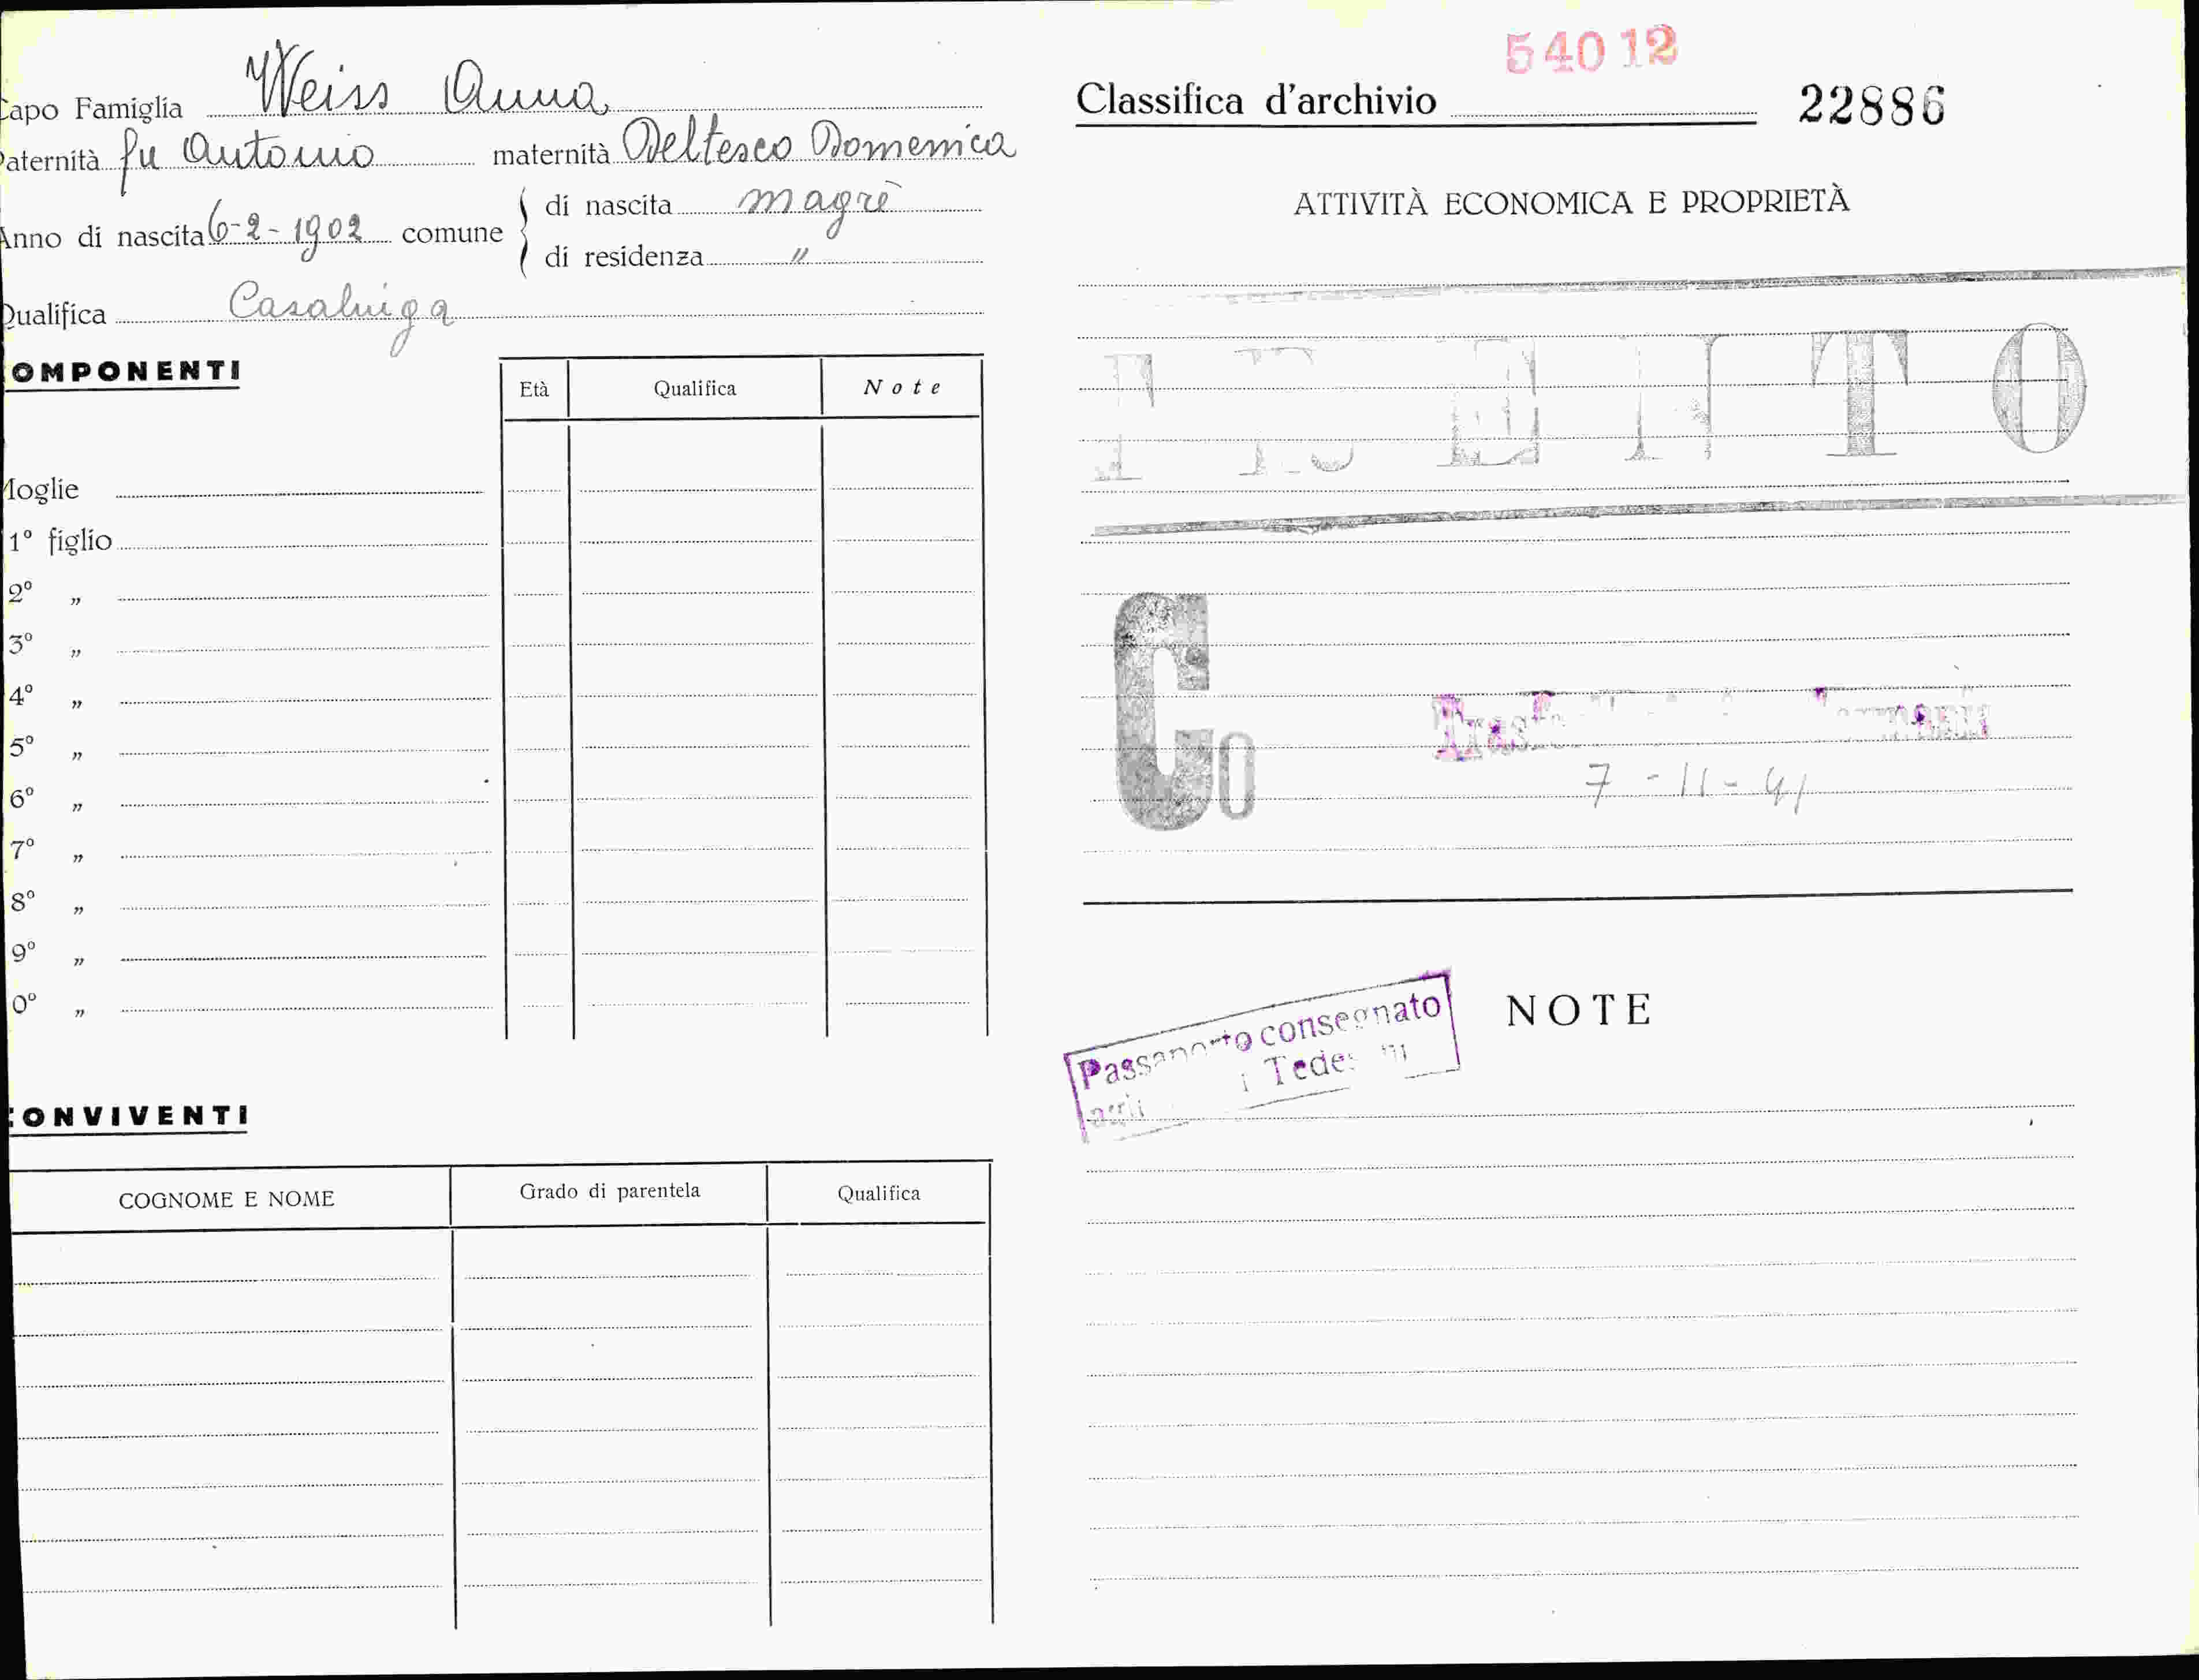 Capo Famiglia Weiss Anna
Paternità fu Antonio maternità Deltesco Domenica
Anno di nascita 6-2-1902 comune
di nascita magrè
di residenza "
Qualifica Casaluiga
COMPONENTI
Età Qualifica Note
Moglie
1° figlio
2° "
3° "
4° "
5° "
6° "
7° "
8° "
9° "
0° "
CONVIVENTI
COGNOME E NOME Grado di parentela Qualifica
54012
Classifica d'archivio 22886
ATTIVITÀ ECONOMICA E PROPRIETÀ
Go
7-11-41
Passaporto consegnato
NOTE